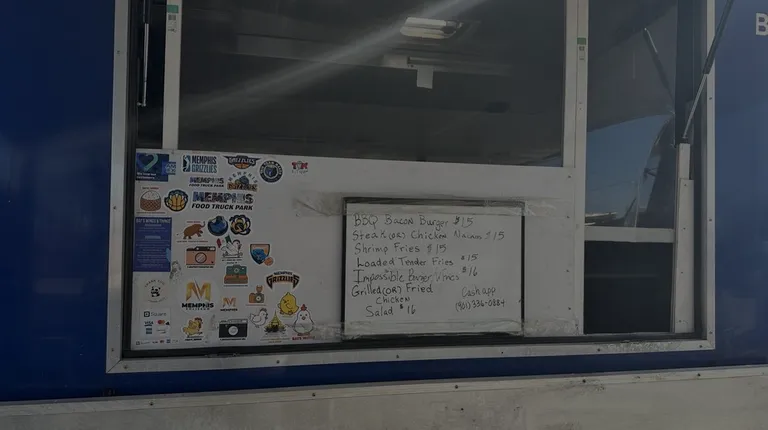 MEMPHIS
GRIZZLIES
GRIZZLIES
MEMPHIS
FOOD TRUCK PARK
MEMPHIS
FOOD TRUCK PARK
GRIZZLIES
MEMPHIS
BSQ Bacon Burger $15
Steak(OR) Chicken Nachos $15
Shrimp Fries $15
Loaded Tender Fries $15
Impossible Burger/Wings $16
Grilled(OR) Fried
Chicken
Salad $16
Cash app
(901) 336-0384
B